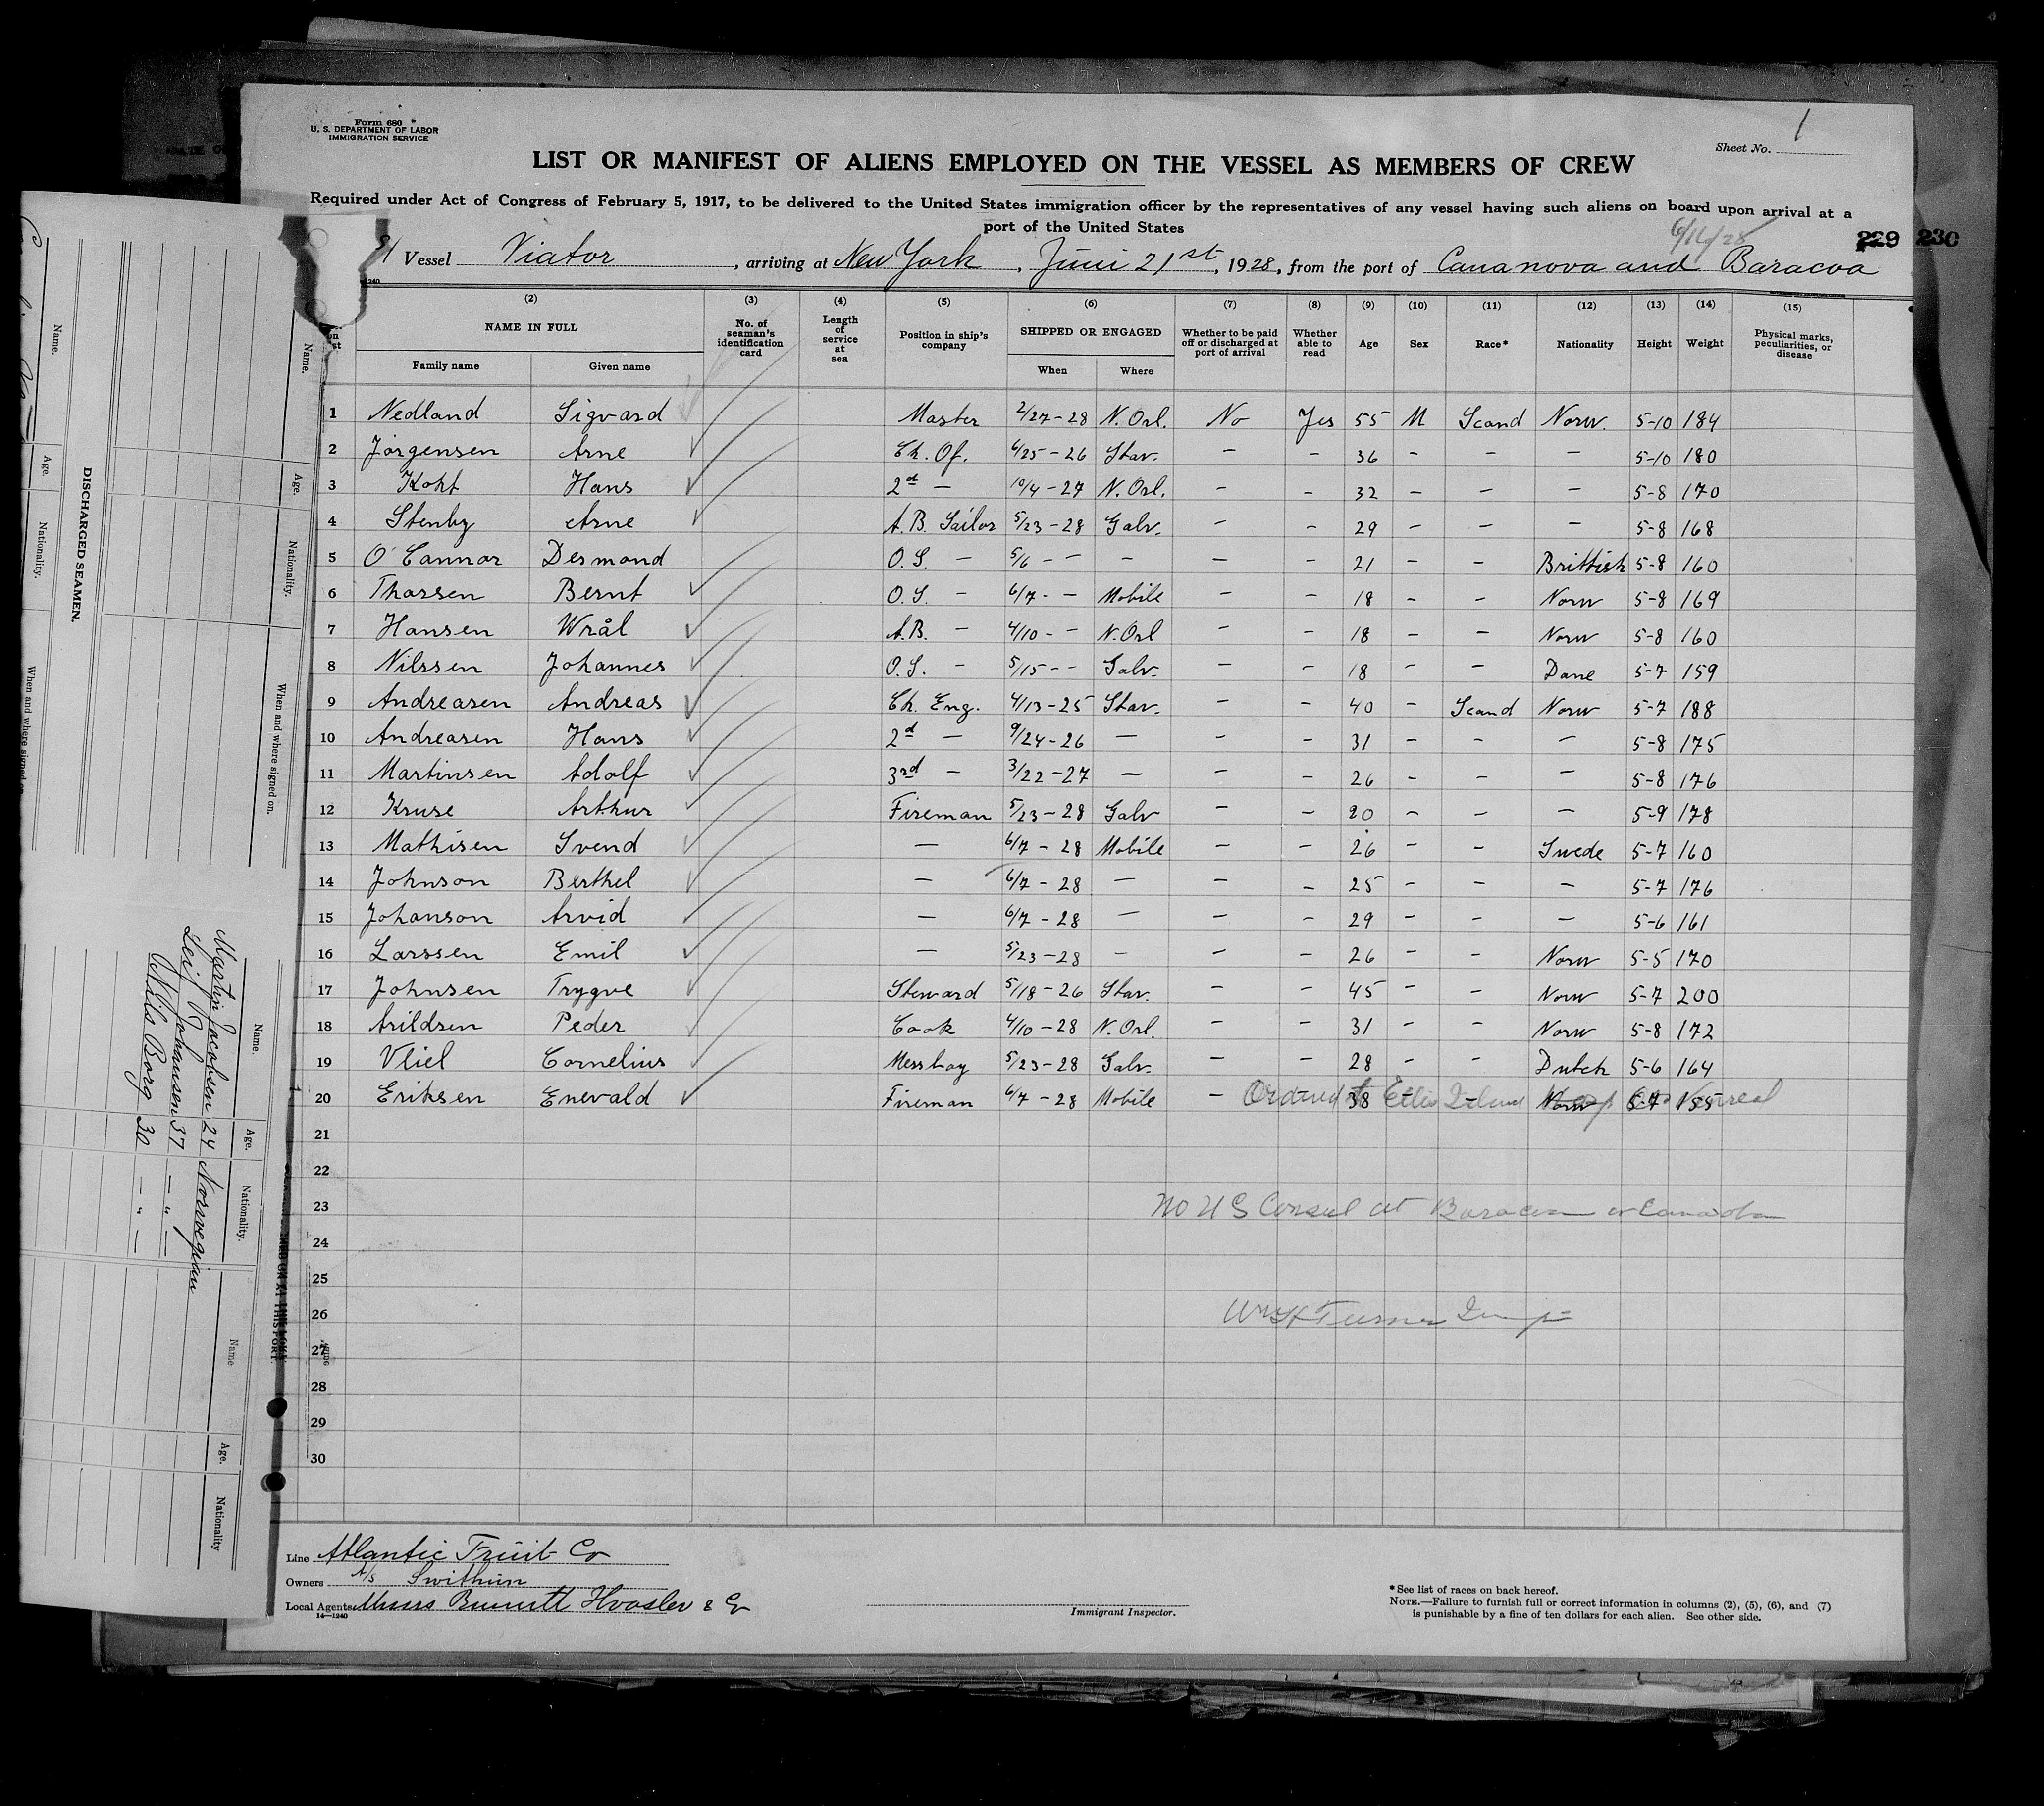 Form 680
U. S. DEPARTMENT OF LABOR
IMMIGRATION SERVICE
Sheet No. 1
LIST OR MANIFEST OF ALIENS EMPLOYED ON THE VESSEL AS MEMBERS OF CREW
Required under Act of Congress of February 5, 1917, to be delivered to the United States immigration officer by the representatives of any vessel having such aliens on board upon arrival at a
port of the United States
6/16/28
229 230
Vessel Viator, arriving at New York, Juni 21st, 1928, from the port of Cananova and Baracoa
(2) (3) (4) (5) (6) (7) (8) (9) (10) (11) (12) (13) (14) (15)
NAME IN FULL No. of seaman's identification card Length of service at sea Position in ship's company SHIPPED OR ENGAGED Whether to be paid off or discharged at port of arrival Whether able to read Age Sex Race* Nationality Height Weight Physical marks, peculiarities, or disease
Family name Given name When Where
1 Nedland Sigvard Master 2/27-28 N. Orl. No Yes 55 M Scand Norw. 5-10 184
2 Jørgensen Arne Ch. Of. 6/25-26 Stav. — — 36 — — — 5-10 180
3 Koht Hans 2d — 10/4-27 N. Orl. — — 32 — — — 5-8 170
4 Stenby Arne A.B. Sailor 5/23-28 Galv. — — 29 — — — 5-8 168
5 O'Connor Desmond O.S. — 5/6 - — — — — 21 — — Brittish 5-8 160
6 Thorsen Bernt O.S. — 6/7 - — Mobile — — 18 — — Norw 5-8 169
7 Hansen Wrål A.B. — 4/10 - — N. Orl — — 18 — — Norw 5-8 160
8 Nilssen Johannes O.S. — 5/15 - - Galv. — — 18 — — Dane 5-7 159
9 Andreasen Andreas Ch. Eng. 4/13-25 Stav. — — 40 — Scand Norw 5-7 188
10 Andreasen Hans 2d — 9/24-26 — — — 31 — — — 5-8 175
11 Martinsen Adolf 3rd — 3/22-27 — — — 26 — — — 5-8 176
12 Kruse Arthur Fireman 5/23-28 Galv — — 20 — — — 5-9 178
13 Mathisen Svend — 6/7-28 Mobile — — 26 — — Swede 5-7 160
14 Johnson Berthel — 6/7-28 — — — 25 — — — 5-7 176
15 Johanson Arvid — 6/7-28 — — — 29 — — — 5-6 161
16 Larssen Emil — 5/23-28 — — — 26 — — Norw 5-5 170
17 Johnsen Trygve Steward 5/18-26 Stav. — — 45 — — Norw 5-7 200
18 Arildsen Peder Cook 4/10-28 N. Orl. — — 31 — — Norw 5-8 172
19 Vliel Cornelius Messboy 5/23-28 Galv. — — 28 — — Dutch 5-6 164
20 Eriksen Enevald Fireman 6/7-28 Mobile — — 38 — — Norw 5-7 155
Ordered to Ellis Island
21
22
23 No U S Consul at Baracoa or
24
25
26 Wm H Turner Insp
27
28
29
30
Line Atlantic Fruit Co
Owners A/s Swithun
Local Agents Messrs
14—1240
Immigrant Inspector.
*See list of races on back hereof.
NOTE.—Failure to furnish full or correct information in columns (2), (5), (6), and (7)
is punishable by a fine of ten dollars for each alien. See other side.
DISCHARGED SEAMEN.
Name. Age. Nationality. When and where signed on.
Name. Age. Nationality. When and where signed on
Name. Age. Nationality. Name Age. Nationality
Martin Jacobsen 24 Norwegian
Leif R Johansen 37 — " —
Nils Borg 30 — " —